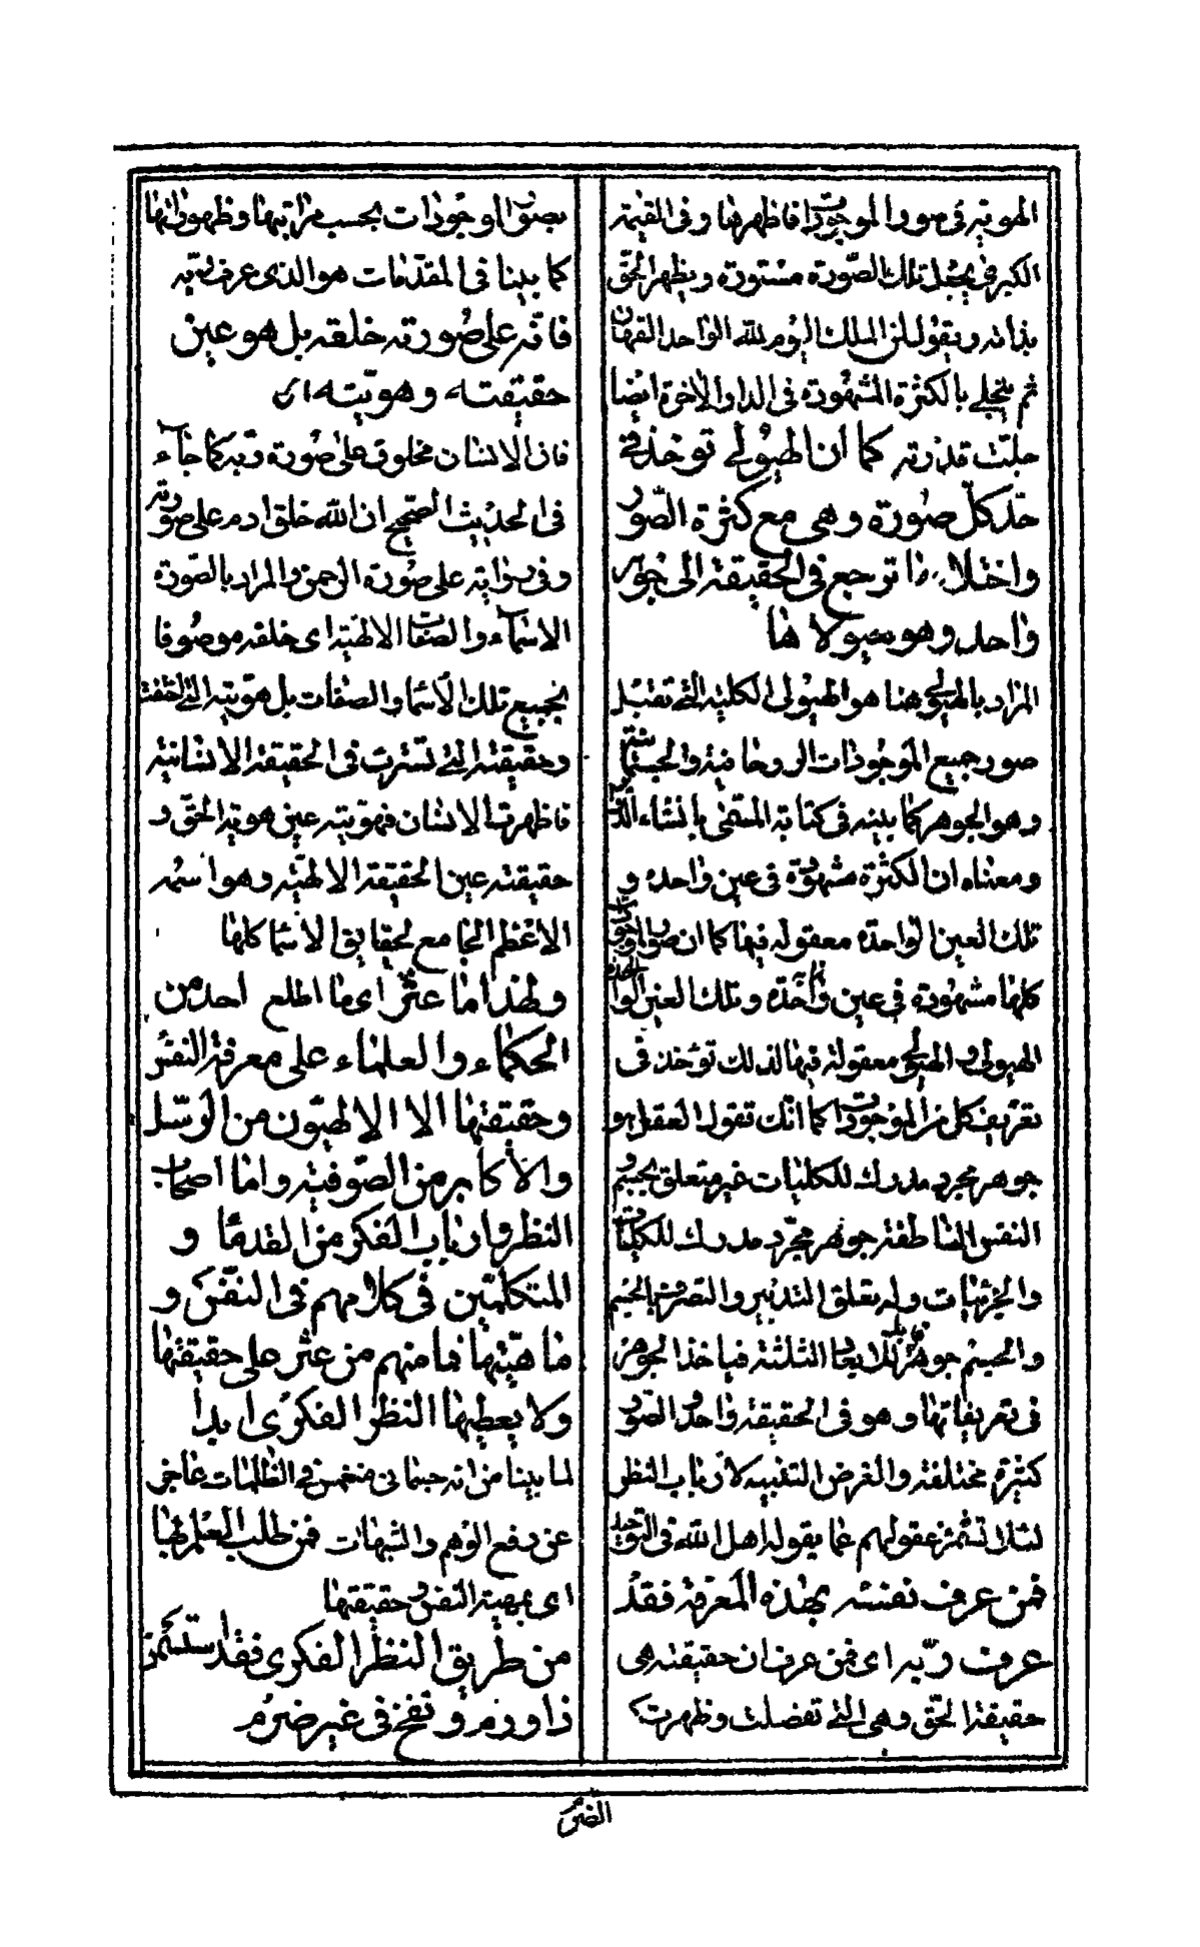 الهوية في صور الموجودات فاظهرتها وفي القيمة
الكبرى يجعل تلك الصورة مستورة ويظهر الحق
بذاته ويقول لمن الملك اليوم لله الواحد القهار
ثم يتجلى بالكثرة المشهودة في الدار الآخرة ايضا
جلت قدرته كما ان الهيولى توخذ في
حد كل صورة وهي مع كثرة الصور
واختلافها ترجع في الحقيقة الى جوهر
واحد وهو هيولاها
المراد بالهيولى هنا هو الهيولى الكلية التي تقبل
صور جميع الموجودات الروحانية والجسمانية
وهو الجوهر كما بينه في كتابه المسمى بانشاء الدوائر
ومعناه ان الكثرة مشهودة في عين واحدة و
تلك العين الواحدة معقولة فيها كما ان صور الموجودات
كلها مشهودة في عين واحدة وتلك العين الواحدة
الهيولى و الهيولى معقولة فيها لذلك تؤخذ في
تعريف كل من الموجودات كما انك تقول العقل هو
جوهر مجرد مدرك للكليات غير متعلق بجسم و
النفس الناطقة جوهر مجرد مدرك للكليات
والجزئيات وله تعلق التدبير والتصرف بالجسم
والجسم جوهر قابل للابعاد الثلثة فياخذ الجوهر
في تعريفاتها وهو في الحقيقة واحد والصور
كثيرة مختلفة والغرض التنبيه لارباب النظر
لئلا تشمئز عقولهم عما يقوله اهل الله في التوحيد
فمن عرف نفسه بهذه المعرفة فقد
عرف ربه اى فمن عرف ان حقيقته هي
حقيقة الحق وهي التي تفصلت وظهرت
بصور الموجودات بحسب مراتبها وظهوراتها
كما بينا في المقدمات هو الذي عرف ربه
فانه على صورته خلقه بل هو عين
حقيقته وهويته اى
فان الانسان مخلوق على صورة ربه كما جاء
في الحديث الصحيح ان الله خلق ادم على صورته
وفي رواية على صورة الرحمن والمراد بالصورة
الاسماء والصفات الالهية اى خلقه موصوفا
بجميع تلك الاسماء والصفات بل هويته التي اختفت
وحقيقته التي تسترت في الحقيقة الانسانية
فاظهرتها الانسان فهويته عين هوية الحق و
حقيقته عين الحقيقة الالهية وهو اسمه
الاعظم الجامع لحقايق الاسما كلها
ولهذا ما عثر اى ما اطلع احد من
الحكماء والعلماء على معرفة النفس
وحقيقتها الا الالهيون من الرسل
والاكابر من الصوفية واما اصحاب
النظر وارباب الفكر من القدما و
المتكلمين في كلامهم في النفس و
ماهيتها فما منهم من عثر على حقيقتها
ولا يعطيها النظر الفكرى ابدا
لما بينا من انه جسماني منغمس في الظلمات عاجز
عن دفع الوهم والشبهات فمن طلب العلم بها
اى بمهية النفس وحقيقتها
من طريق النظر الفكرى فقد استسمن
ذا ورم ونفخ في غير ضرم
الضرم